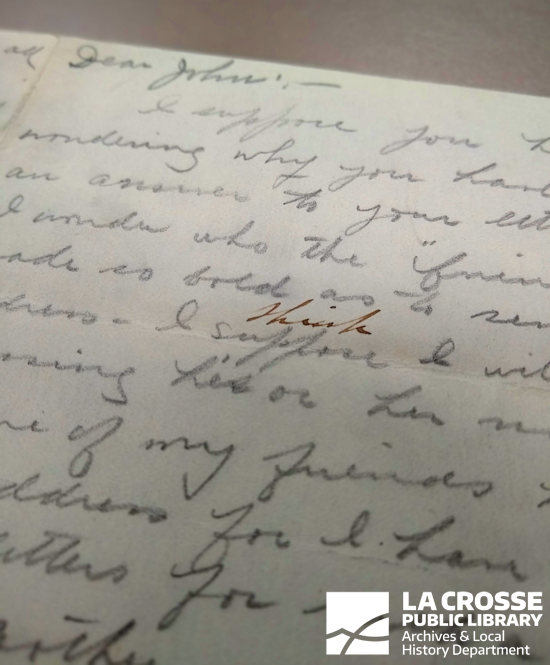 Dear John:—
I suppose you h
wondering why you have
an answer to your lett
I wonder who the "frien
made so bold as to sen
think
dress - I suppose I wil
osing his or her
one of my friends
address for I have
letters for
LA CROSSE
PUBLIC LIBRARY
Archives & Local
History Department